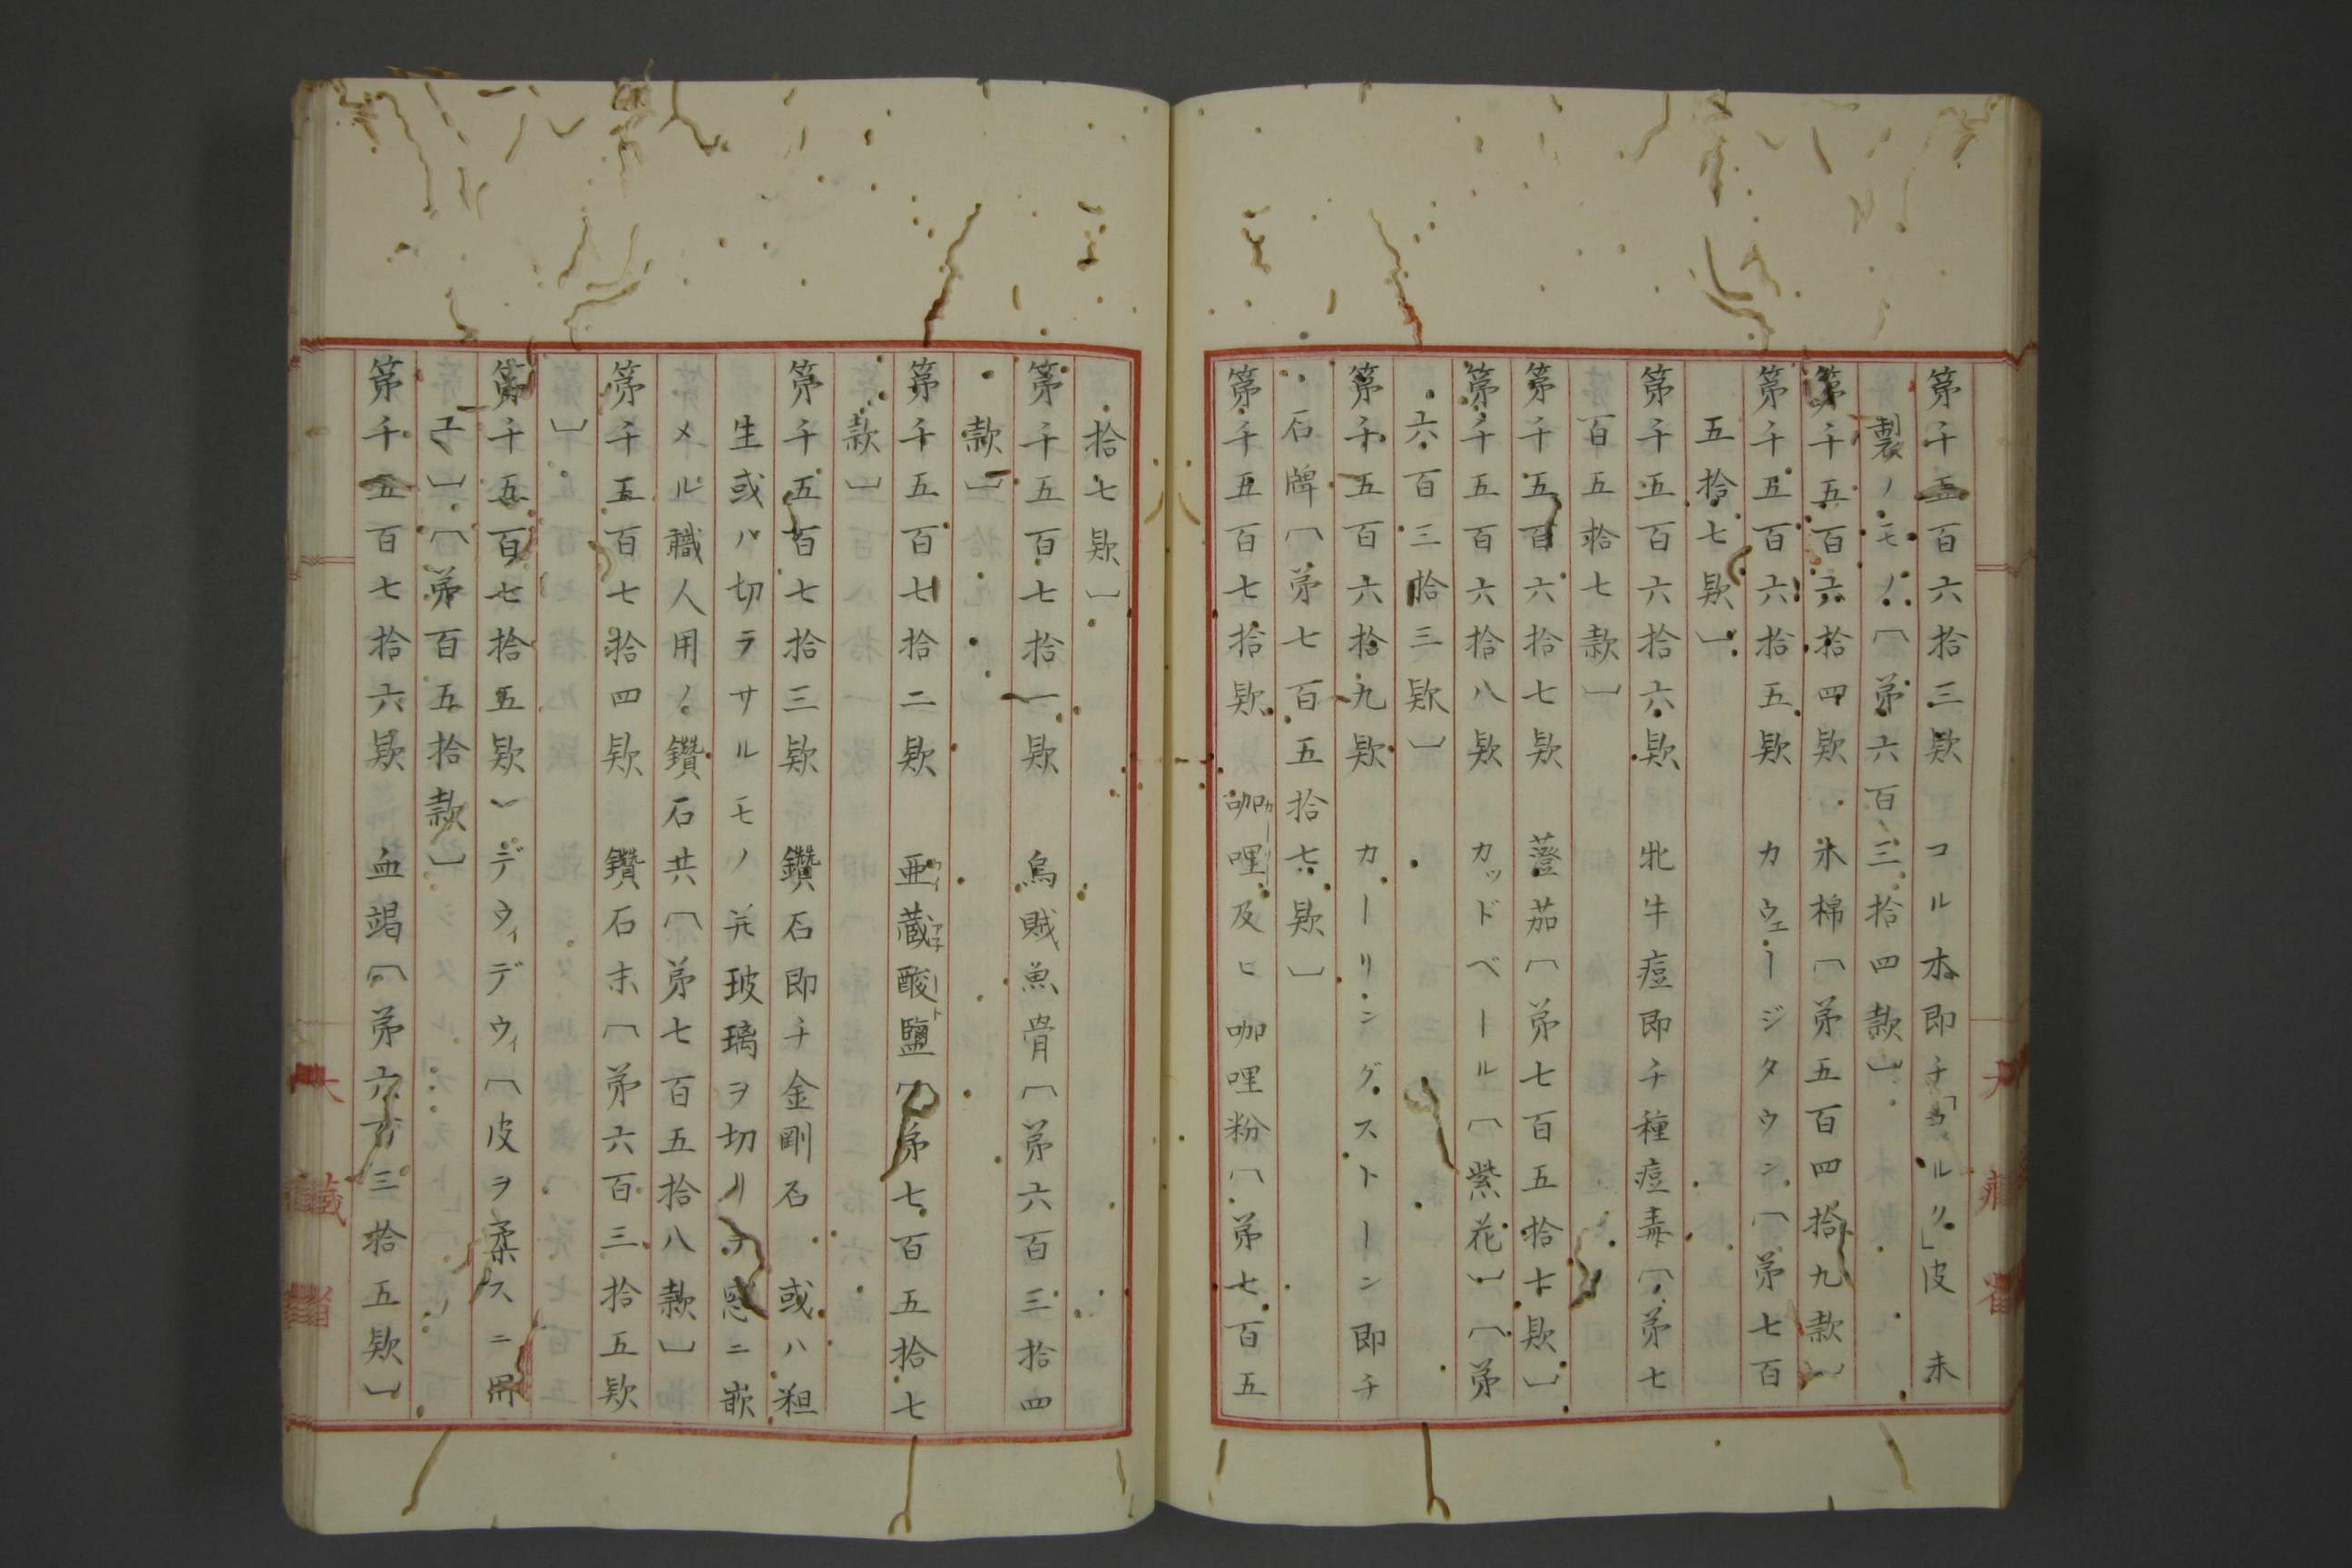 第千五百六拾三欵　コル木即チ「コルク」皮　未
製ノモノ〔第六百三拾四款〕
第千五百六拾四欵　木棉〔第五百四拾九款〕
第千五百六拾五欵　カウェージタウン〔第七百
五拾七欵〕
第千五百六拾六欵　牝牛痘即チ種痘毒〔第七
百五拾七款〕
第千五百六拾七欵　蓽茄〔第七百五拾七欵〕
第千五百六拾八欵　カッドベール〔紫花〕〔第
六百三拾三欵〕
第千五百六拾九欵　カーリングストーン即チ
石牌〔第七百五拾七欵〕
第千五百七拾欵　咖哩及ヒ咖哩粉〔第七百五
拾七欵〕
第千五百七拾一欵　烏賊魚骨〔第六百三拾四
款〕
第千五百七拾二欵　亜蔵酸鹽〔第七百五拾七
款〕
第千五百七拾三欵　鑽石即チ金剛石　或ハ粗
生或ハ切ラサルモノ并玻璃ヲ切リ
メル職人用ノ鑽石共〔第七百五拾八款〕
第千五百七拾四欵　鑽石末〔第六百三拾五欵
〕
第千五百七拾五欵　デウィデウィ〔皮ヲ柔スニ用
ユ〕〔第百五拾款〕
第千五百七拾六欵　血竭〔第六百三拾五欵〕
大
藏
省